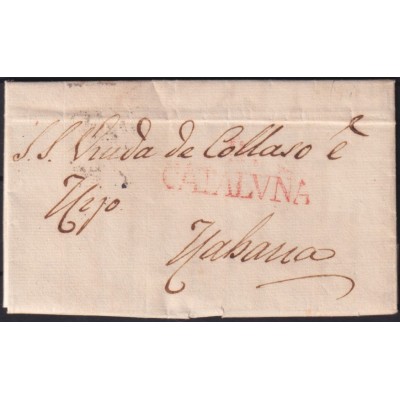 S.S. Viuda de Collaso é
CATALVÑA
Hijo
Habana